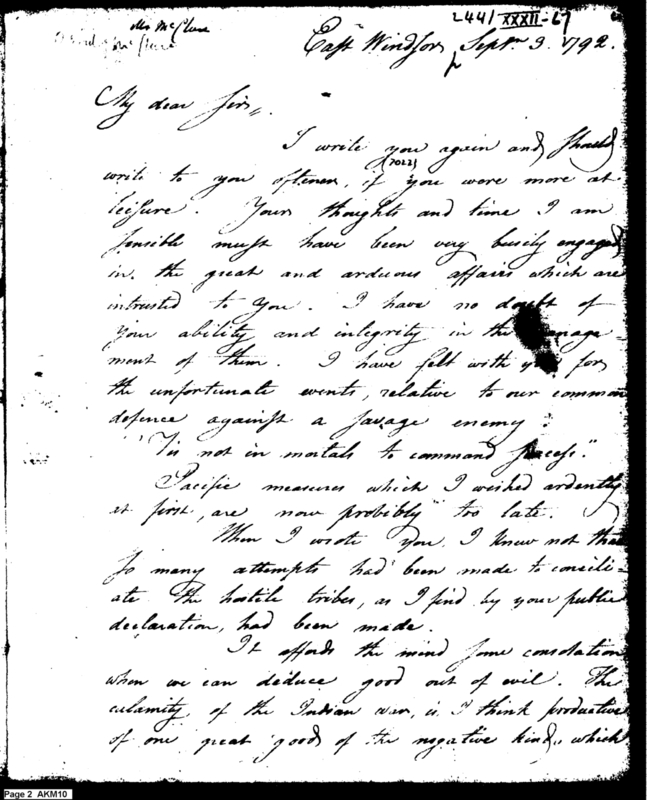 244/ XXXII-67
Mr McClure
East Windsor Septr. 3. 1792.
My dear Sir,
I write you again and should
(7022)
write to you oftener, if you were more at
leisure. Your thoughts and time I am
sensible must have been very busily engaged
in the great and arduous affairs which are
intrusted to you. I have no doubt of
your ability and integrity in the manage-
ment of them. I have felt with you for
the unfortunate events, relative to our common
defence against a savage enemy:
"Tis not in mortals to command success."
Pacific measures which I wished ardently
at first, are now probibly too late.
When I wrote you, I knew not that
so many attempts had been made to concili-
ate the hostile tribes, as I find by your public
declaration, had been made.
It affords the mind some consolation
when we can deduce good out of evil. The
calamity of the Indian war, is I think productive
of one great good of the negative kind, which
Page 2 AKM10